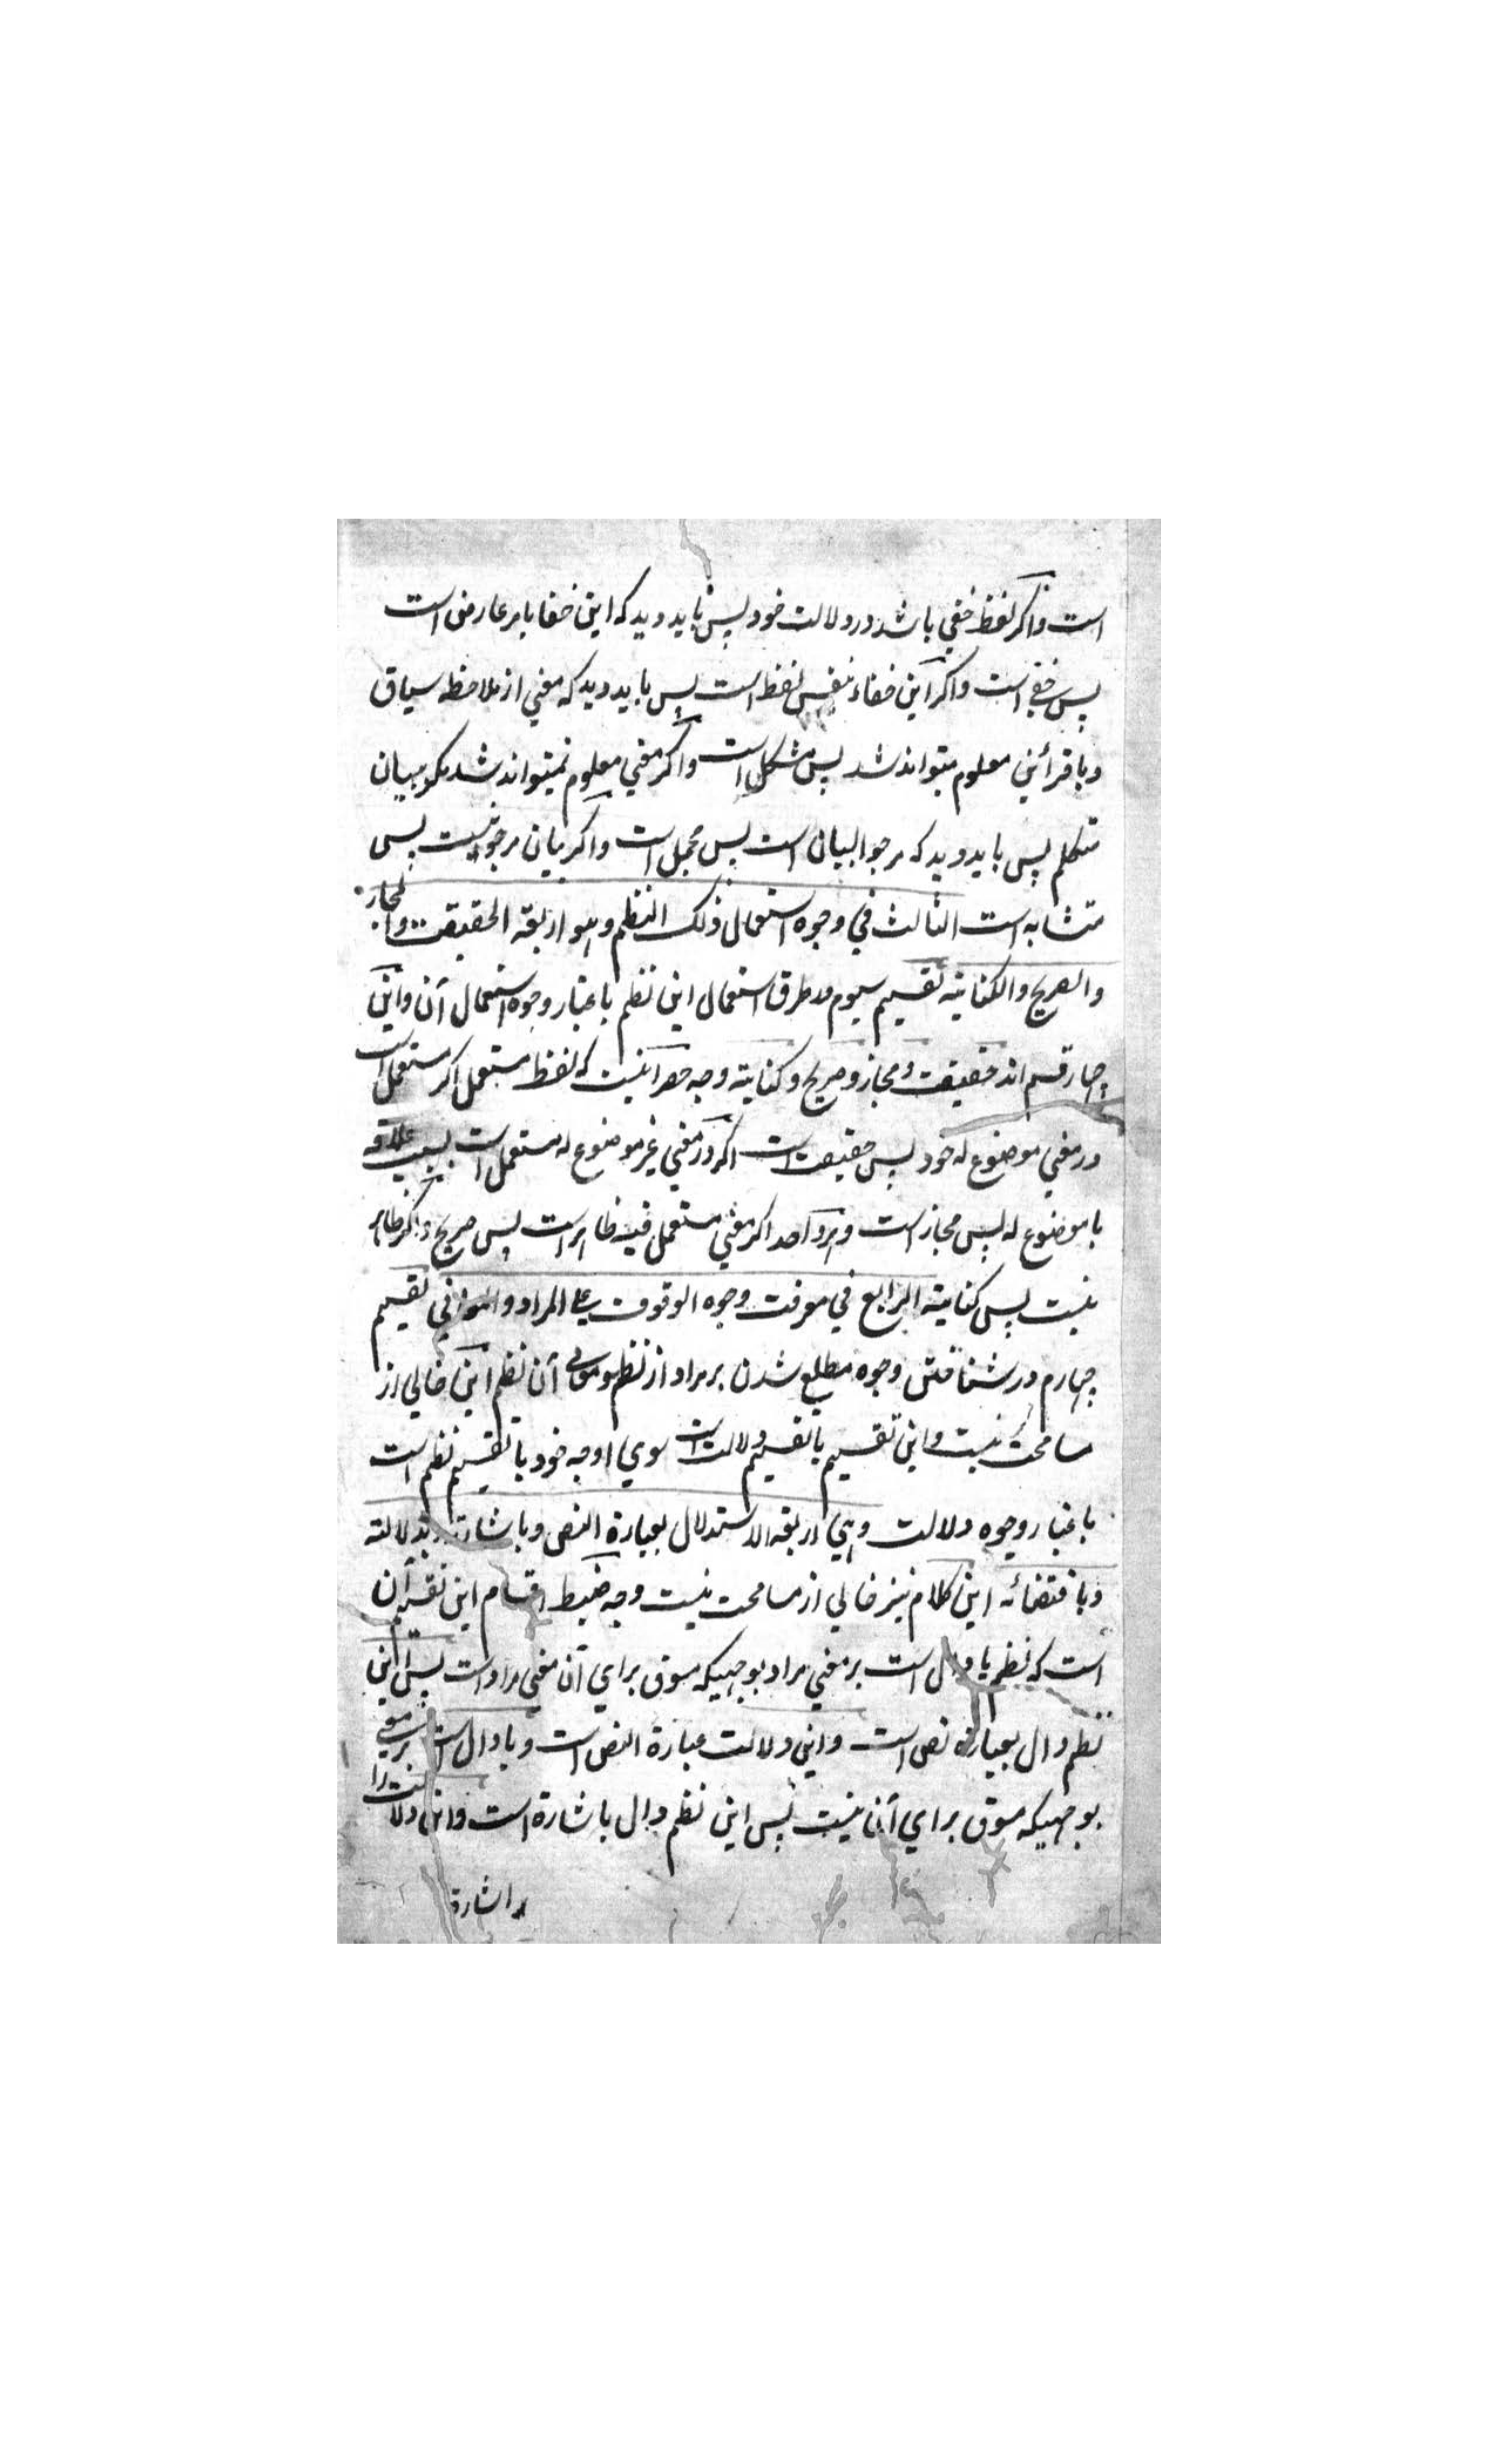 است واكر لفظ خفي باشد در دلالت خود پس بايد ديد كه اين خفا بامر عارض است
پس خفي است واكر اين خفاء بنفس لفظ است پس بايد ديد كه معني از ملاحظه سياق
وبا قرائن معلوم ميتواند شد پس مشكل است واكر معني معلوم نميتواند شد مكر ببيان
متكلم پس بايد ديد كه مرجو البيان است پس مجمل است واكر بيان مرجو نيست پس
متشابه است الثالث في وجوه استعمال ذلك النظم وهو اربعة الحقيقت والمجاز
والصريح والكناية تقسيم سيوم در طرق استعمال اين نظم باعتبار وجوه استعمال آن واين
چهار قسم اند حقيقت ومجاز وصريح وكناية وجه حصر اينست كه لفظ مستعمل اكر مستعمل است
در معني موضوع له خود پس حقيقت است اكر در معني غير موضوع له مستعمل است بسبب علاقه
با موضوع له پس مجاز است وهرواحد اكر معني مستعمل فيه ظاهر است پس صريح واكر ظاهر
نيست پس كناية الرابع في معرفت وجوه الوقوف علي المراد والمعاني تقسيم
چهارم در شناختن وجوه مطلع شدن بر مراد از نظم ومعاني آن نظم اين خالي از
مسامحت نيست واين تقسيم يا تقسيم دلالت است سوي اوجه خود يا تقسيم نظم است
باعتبار وجوه دلالت وهي اربعة الاستدلال بعبارة النص وباشارته وبدلالته
وباقتضائه اين كلام نيز خالي از مسامحت نيست وجه ضبط اقسام اين تقسيم آن
است كه نظم يا دال است بر معني مراد بوجهيكه مسوق براي آن معني مراد است پس اين
نظم دال بعبارة نص است واين دلالت عبارة النص است ويا دال است بر معني
بوجهيكه مسوق براي آن نيست پس اين نظم دال باشارة است واين دلالت را
اشارة